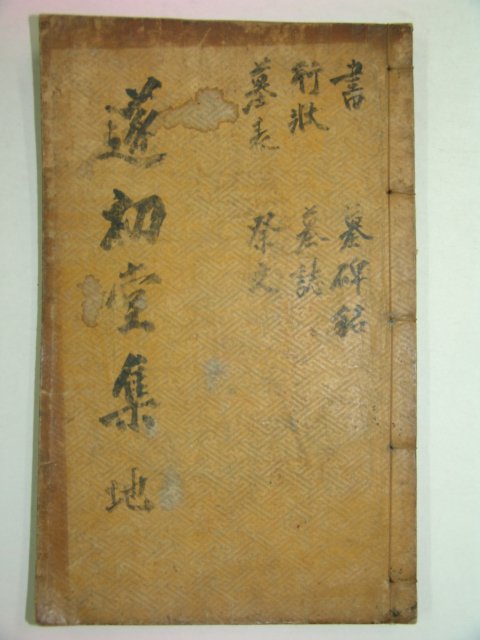 書 墓碑銘
行狀 墓誌
墓表 祭文
遂初堂集 地